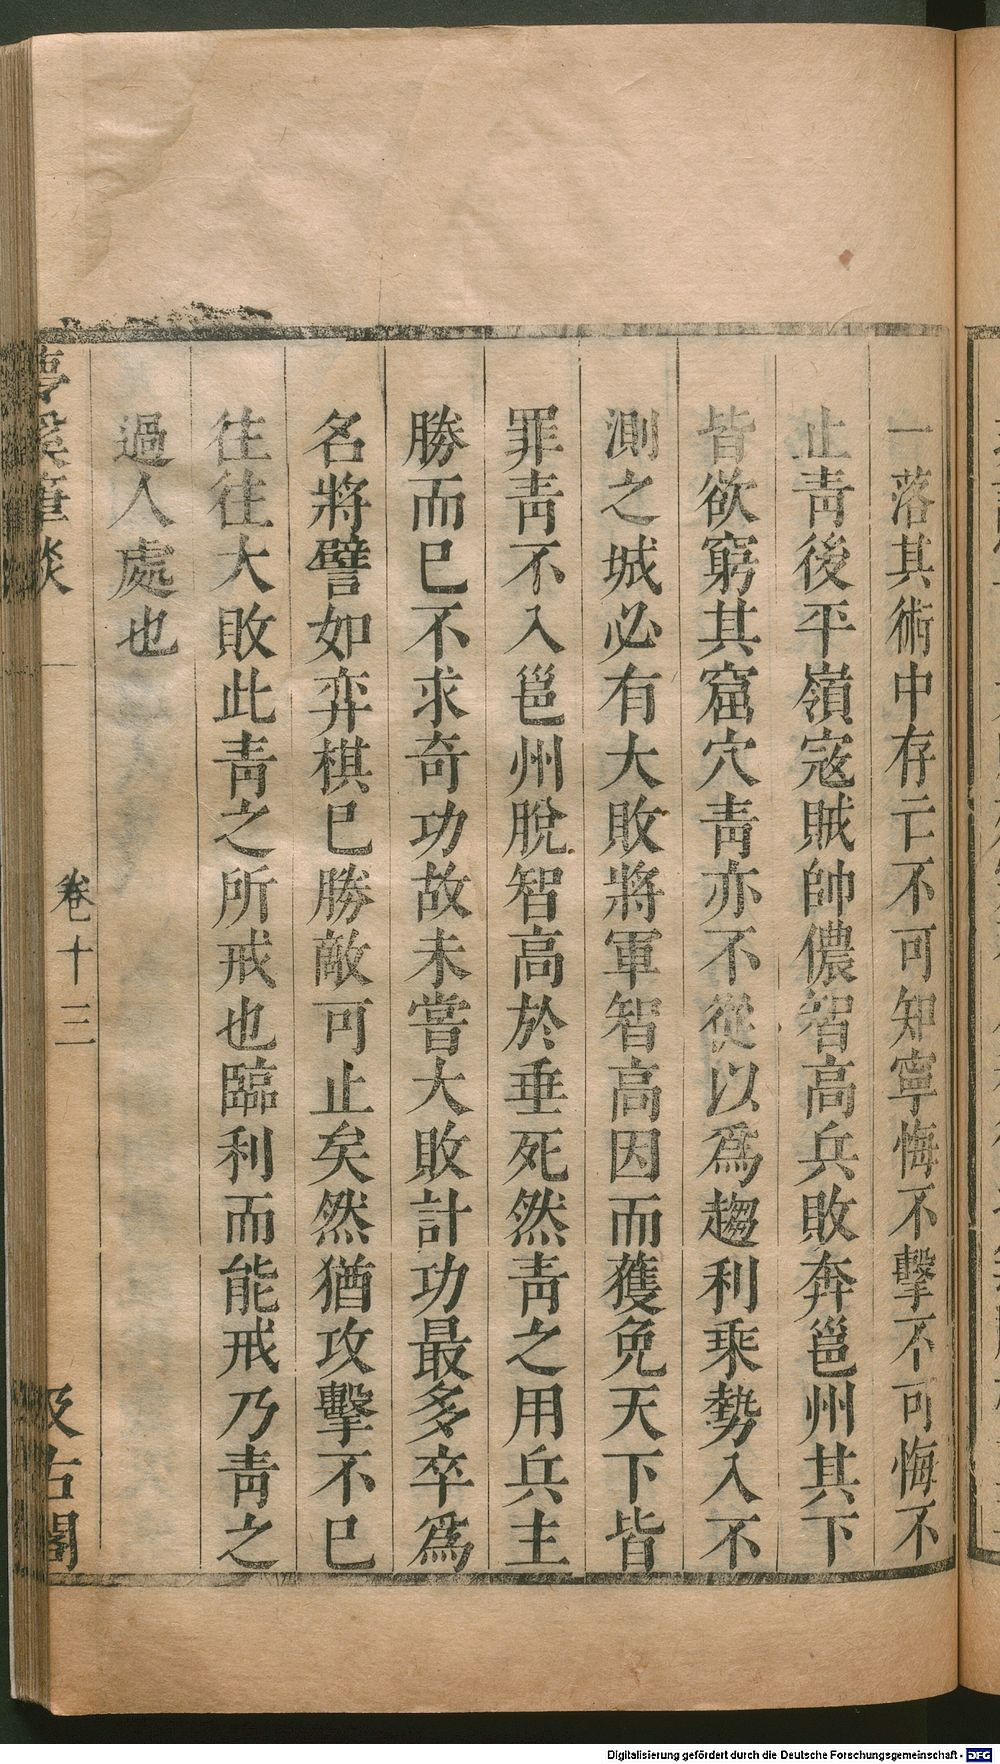 一落其術中存亡不可知寧悔不擊不可悔不
止靑後平嶺寇賊帥儂智高兵敗奔邕州其下
皆欲窮其窟穴靑亦不從以爲趨利乘勢入不
測之城必有大敗將軍智高因而獲免天下皆
罪靑不入邕州脫智高於垂死然靑之用兵主
勝而巳不求奇功故未嘗大敗計功最多卒爲
名將譬如弈棋巳勝敵可止矣然猶攻擊不巳
往往大敗此靑之所戒也臨利而能戒乃靑之
過人處也
夢溪筆談
卷十三
汲古閣
Digitalisierung gefördert durch die Deutsche Forschungsgemeinschaft - DFG